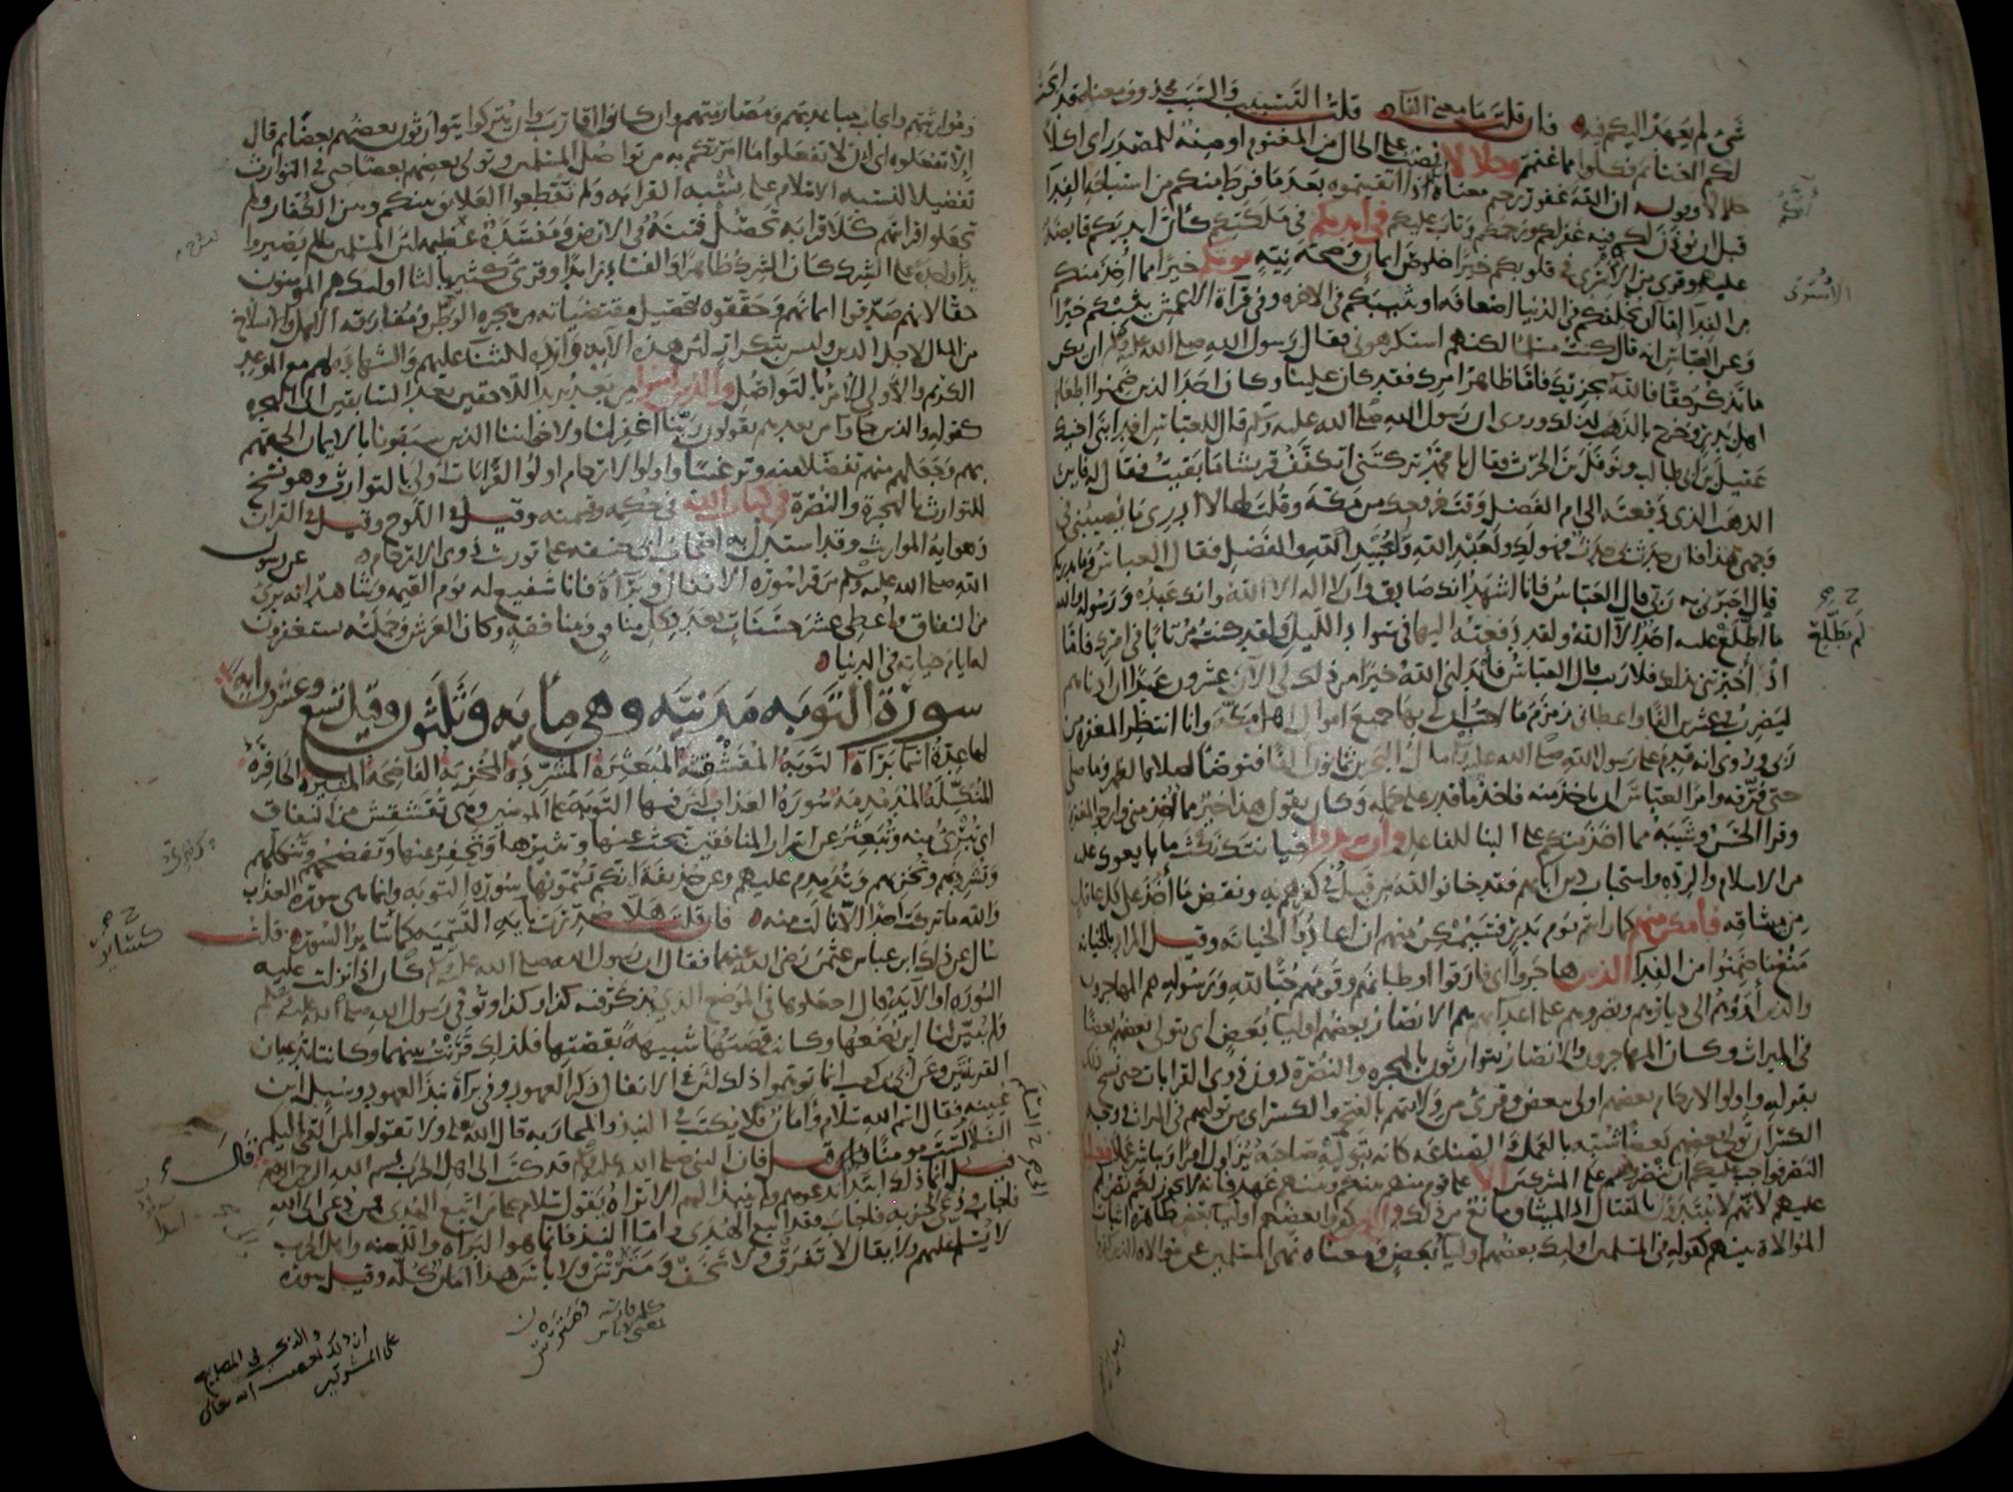 شئ لم يعهد اليكم فيه فان قلت ما معنى الفآء قلت التسبيب والسبب محذوف ومعناه قد ابحت
لكم الغنائم فكلوا مما غنمتم وحلالا نصب على الحال من المغنوم او صفة للمصدر اى اكلا
حلالا وقوله ان الله غفور رحيم معناه اذا اتقيتموه بعد ما فرط منكم من استباحة الفدآ
قبل ان يؤذن لكم فيه غفر لكم ورحمكم وتاب عليكم فى ايديكم فى ملكتكم كأن ايديكم قابضة
عليهم وقرى من الأسرى فى قلوبكم خيرا خلوص ايمان وصحة نية يوتكم خيرا مما اخذ منكم
من الفدآ اما ان يخلفكم فى الدنيا اضعافه او يثيبكم فى الاخره وفى قرآة الاعمش يثبكم خيرا
وعن العباس انه قال كنت مسلما لكنهم استكرهونى فقال رسول الله صلى الله عليه وسلم ان يكن
ما تذكر حقا فالله يجزيك فاما ظاهر امرك فقد كان علينا وكان احد الذين ضمنوا اطعام
اهل بدر وخرج بالذهب لذلك وروى ان رسول الله صلى الله عليه وسلم قال للعباس افد ابنى اخيك
عقيل بن ابى طالب ونوفل بن الحرث فقال يا محمد تركتنى اتكفف قريشا ما بقيت فقال له فاين
الذهب الذى دفعته الى ام الفضل وقت خروجك من مكة وقلت لها لا ادرى ما يصيبنى فى
وجهى هذا فان حدث بى حدث فهو لك ولعبد الله وعبيد الله والفضل فقال العباس وما يدريك
قال اخبرنى به ربى قال العباس فانا اشهد انك صادق وان لا اله الا الله وانك عبده ورسوله والله
ما اطلع عليه احد الا الله ولقد دفعته اليها فى سواد الليل ولقد كنت مرتابا فى امرك فاما
اذ أخبرتنى بذلك فلا ريب قال العباس فأبدلنى الله خيرا من ذلك لى الآن عشرون عبدا ان ادناهم
ليضرب فى عشرين الفا واعطانى زمزم ما احب ان لى بها جميع اموال اهل مكة وانا انتظر المغفره من
ربى وروى انه قدم على رسول الله صلى الله عليه وسلم مال البحرين ثمانون الفا فتوضأ لصلاة الظهر وما صلى
حتى فرقه وامر العباس ان ياخذ منه فاخذ ما قدر على حمله وكان يقول هذا خير مما اخذ منى وارجو المغفره
وقرا الحسن وشيبة مما اخذ منكم على البنا للفاعل وان يريدوا خيانتك نكث ما بايعوك عليه
من الاسلام والردة واستحباب دين ابائهم فقد خانوا الله من قبل فى كفرهم به ونقض ما أخذ على كل عاقل
من ميثاقه فأمكن منهم كما رايتم يوم بدر فسيمكن منهم ان اعادوا الخيانة وقيل المراد بالخيانه
منع ما ضمنوا من الفدآ الذين هاجروا اى فارقوا اوطانهم وقومهم حبا لله ورسوله هم المهاجرون
والذين آووهم الى ديارهم ونصروهم على اعدآئهم هم الانصار بعضهم اوليآ بعض اى يتولى بعضهم بعضا
فى الميراث وكان المهاجرون والانصار يتوارثون بالهجره والنصرة دون ذوى القرابات حتى نسخ ذلك
بقوله واولوا الارحام بعضهم اولى ببعض وقرئ من ولايتهم بالفتح والكسر اى من توليهم فى الميراث ووجه
الكسر ان تولى بعضهم بعضا شبه بالعمل والصناعه كانه بتوليه صاحبه يزاول امرا ويباشر عملا فعليكم
النصر فواجب عليكم ان تنصروهم على المشركين الا على قوم منهم بينكم وبينهم عهد فانه لا يجوز لكم نصرهم
عليهم لأنهم لا يبتدؤن بالقتال اذ الميثاق مانع من ذلك والذين كفروا بعضهم اوليآ بعض ظاهره اثبات
الموالاة بينهم كقوله فى المسلمين اولئك بعضهم اوليآ بعض ومعناه نهى المسلمين عن موالاة الذين كفروا
الأسرى
لم يطلع
وموارثتهم وايجاب مباعدتهم ومصارمتهم وان كانوا اقارب وان يتركوا يتوارثون بعضهم بعضا ثم قال
إلا تفعلوه اى الا تفعلوا ما امرتكم به من تواصل المسلمين وتولى بعضهم بعضا حتى فى التوارث
تفضيلا لنسبة الاسلام على نسبة القرابه ولم تقطعوا العلائق بينكم وبين الكفار ولم
تجعلوا قرابتهم كلا قرابه تحصل فتنة فى الارض ومفسدة عظيمه لأن المسلمين ما لم يصيروا
يدا واحدة على الشرك كان الشرك ظاهرا والفساد زائدا وقرئ كثير بالثا اولئك هم المؤمنون
حقا لانهم صدقوا ايمانهم وحققوه بتحصيل مقتضياته من هجرة الوطن ومفارقة الاهل والانسلاخ
من المال لاجل الدين وليس بتكرار لأن هذه الآيه واردة للثنآ عليهم والشهادة لهم مع الموعد
الكريم والأولى للأمر بالتواصل والذين آمنوا من بعد يريد اللاحقين بعد السابقين الى الهجره
كقوله والذين جاوا من بعدهم يقولون ربنا اغفر لنا ولاخواننا الذين سبقونا بالايمان الحقهم
بهم وجعلهم منهم تفضلا منه وترغيبا واولوا الارحام اولوا القرابات اولى بالتوارث وهو نسخ
للتوارث بالهجرة والنصرة فى كتاب الله فى حكمه وقسمته وقيل فى اللوح وقيل فى القران
وهو آية المواريث وقد استدل به اصحاب ابى حنيفه على توريث ذوى الارحام عن رسول
الله صلى الله عليه وسلم من قرا سورة الانفال وبرآءة فانا شفيع له يوم القيمه وشاهد انه برئ
من النفاق واعطى عشر حسنات بعدد كل منافق ومنافقة وكان العرش وحملته يستغفرون
له ايام حياته فى الدنيا
سورة التوبه مدنيه وهى مايه وثلثون وقيل تسع وعشرون اية
لها عدة اسما برآة التوبة المقشقشة المبعثرة المشردة المخزيه الفاضحه المثيرة الحافرة
المنكلة المدمدمة سورة العذاب لأن فيها التوبة على المومنين وهى تقشقش من النفاق
اى تبرئ منه وتبعثر عن اسرار المنافقين تبحث عنها وتثيرها وتحفر عنها وتفضحهم وتنكلهم
وتشردهم وتخزيهم وتدمدم عليهم وعن حذيفة انكم تسمونها سورة التوبه وانما هى سورة العذاب
والله ما تركت احدا الا نالت منه فان قلت هلا صدرت بآية التسميه كما سائر السور قلت
سال عن ذلك ابن عباس عثمن رضى الله عنهما فقال ان رسول الله صلى الله عليه وسلم كان اذا نزلت عليه
السورة او الآية قال اجعلوها فى الموضع الذى يذكر فيه كذا وكذا وتوفى رسول الله صلى الله عليه وسلم
ولم يبين لنا اين نضعها وكانت قصتها شبيهة بقصتها فلذلك قرنت بينهما وكانتا تدعيان
القرينتين وعن ابى بن كعب انما توهموا ذلك لأن فى الانفال ذكر العهود وفى برآة نبذ العهود وسئل ابن
عيينه فقال اسم الله سلام وأمان فلا يكتب فى النبذ والمحاربه قال الله تعالى ولا تقولوا لمن القى اليكم
السلام لست مومنا قيل فان النبى صلى الله عليه وسلم قد كتب الى اهل الحرب بسم الله الرحمن الرحيم قال
انما ذلك ابتدآ يدعوهم ولم ينبذ اليهم الا تراه يقول سلام على من اتبع الهدى فمن دعى الى الله
فاجاب ودعى الى الجزيه فاجاب فقد اتبع الهدى واما النبذ فانما هو البرآة واللعنه واهل الحرب
لا يسلم عليهم ولا يقال لا تفرق ولا تخف ومترس ولا باس هذا امان كله وقيل سورة
كلمة فارسية
معنى لا باس
والذى فى المصابيح
على المشركين